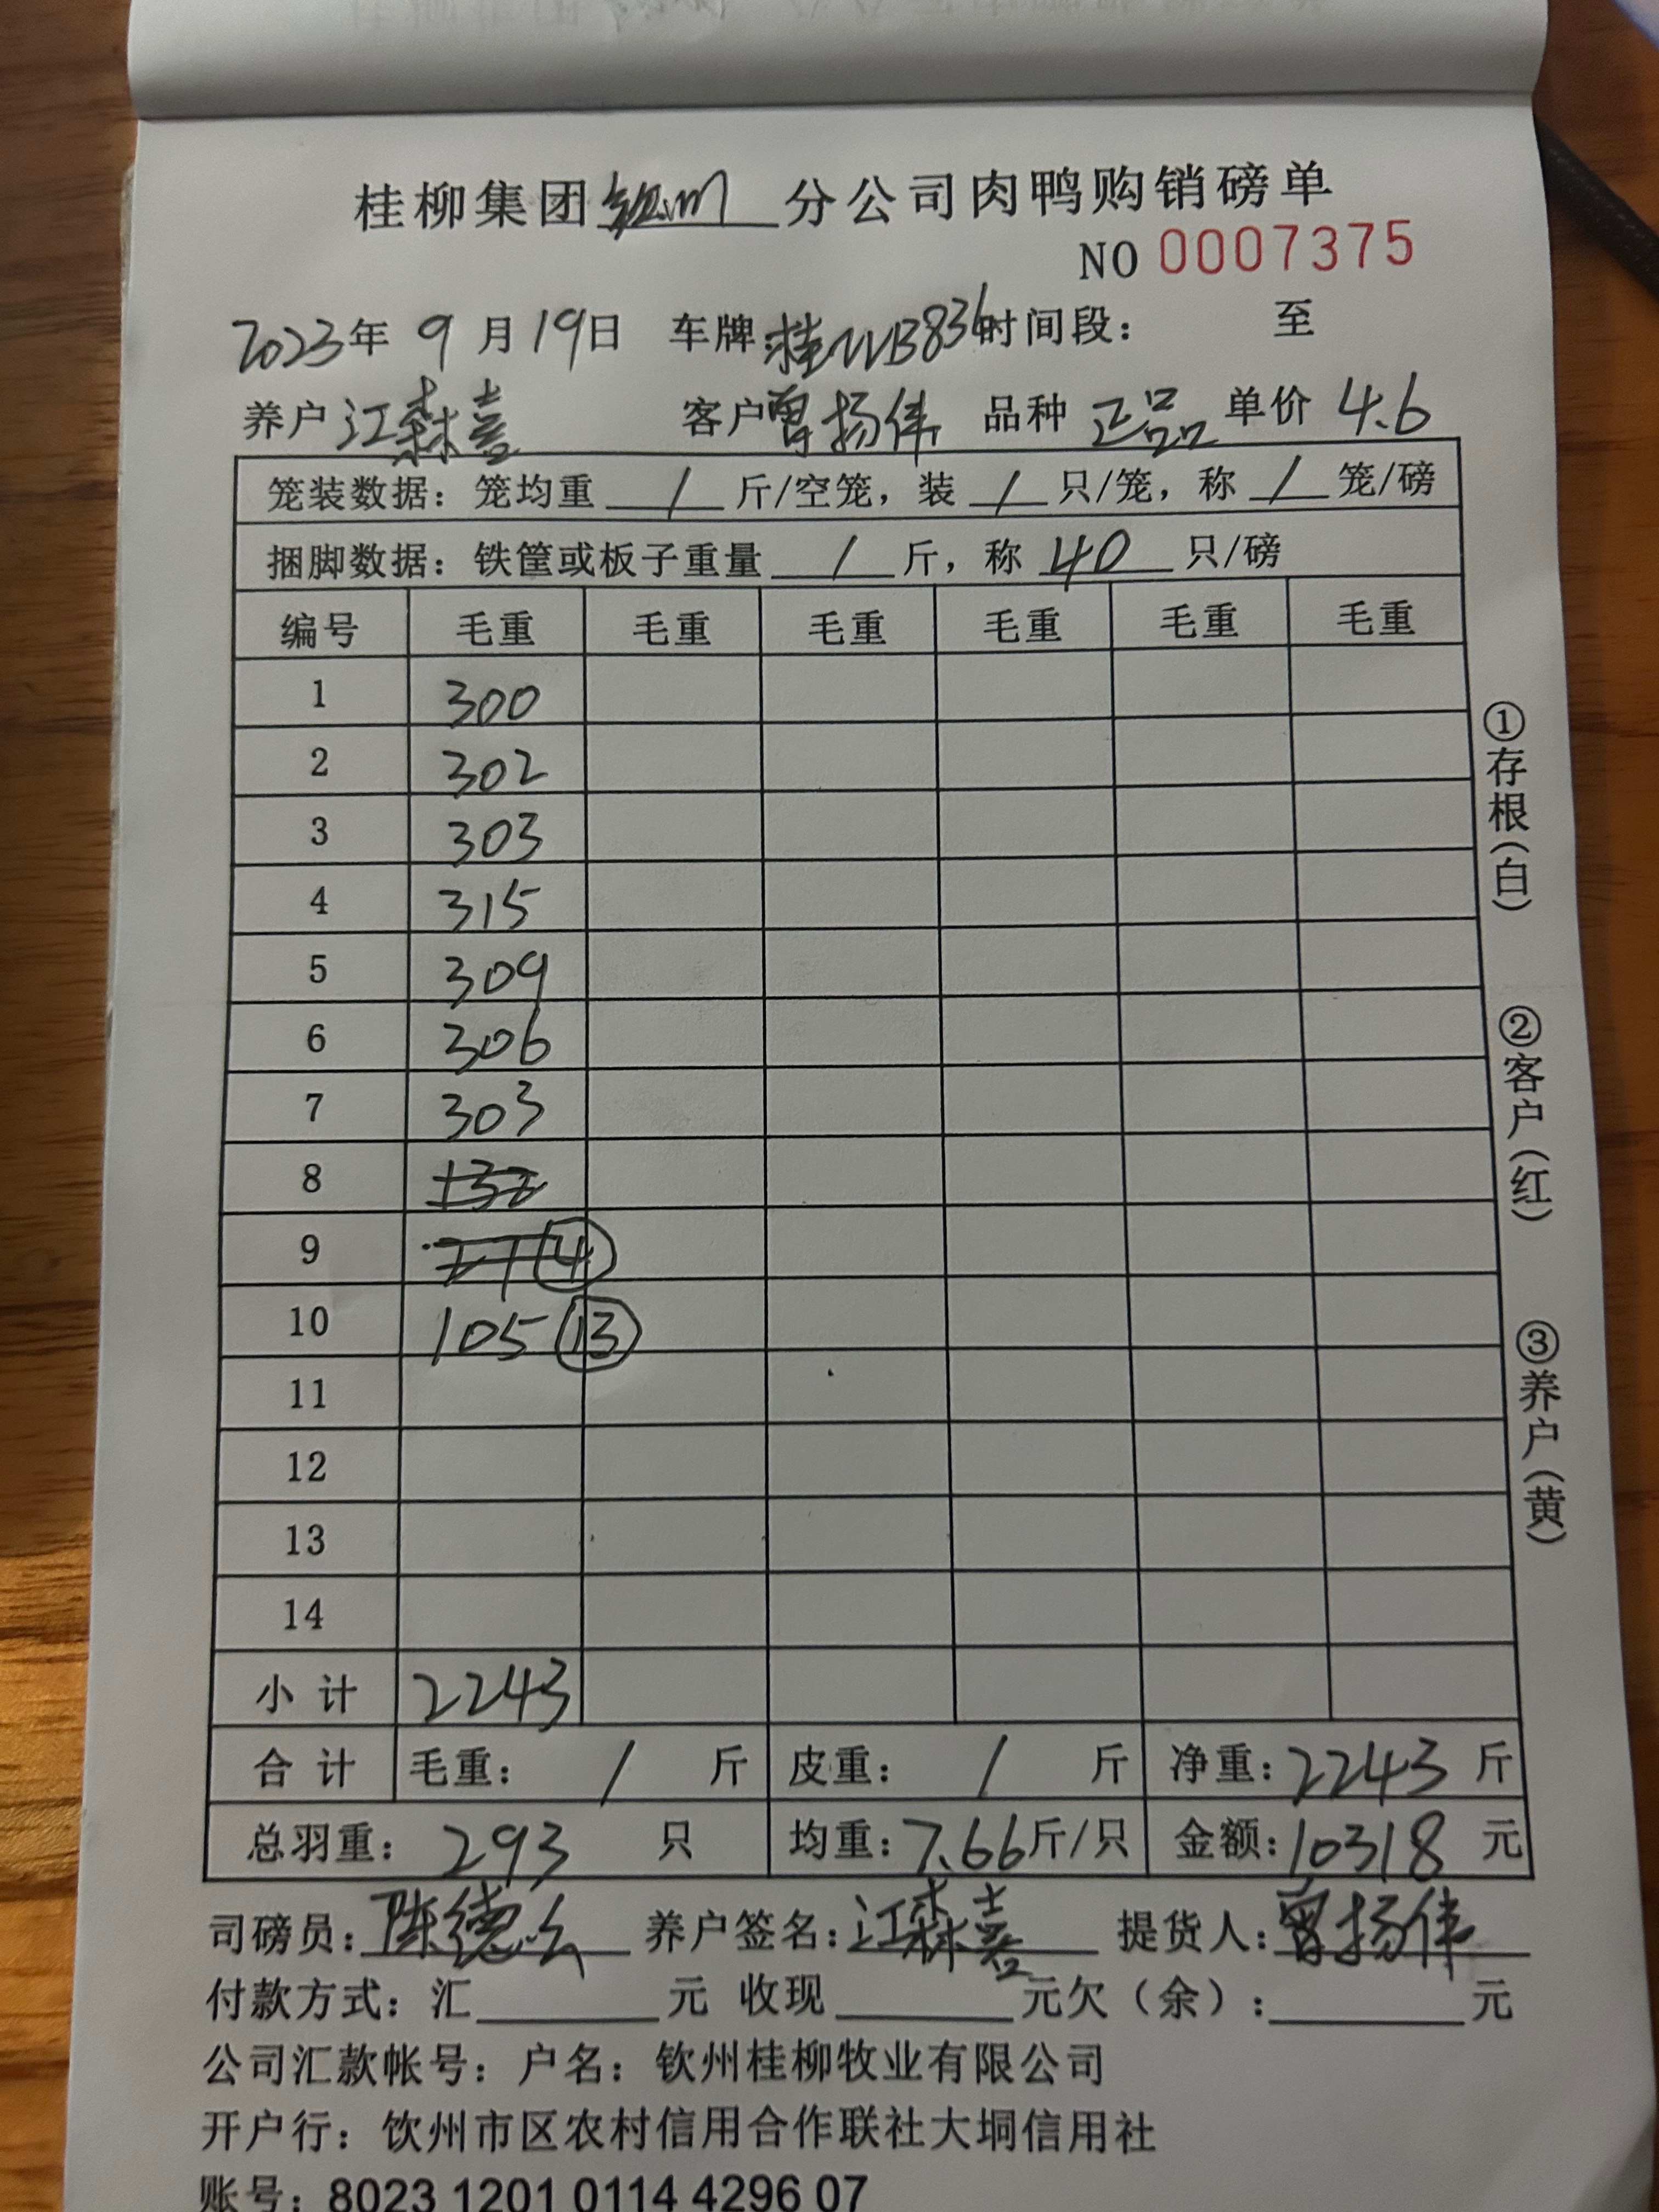 桂柳集团钦州分公司肉鸭购销磅单
NO 0007375
2023年 9 月 19日 车牌:桂NB836时间段: 至
养户 江森喜 客户曾扬伟 品种 正品 单价 4.6
笼装数据: 笼均重 / 斤/空笼, 装 / 只/笼, 称 / 笼/磅
捆脚数据: 铁筐或板子重量 / 斤, 称 40 只/磅
编号 毛重 毛重 毛重 毛重 毛重 毛重
1 300
2 302
3 303
4 315
5 309
6 306
7 303
8
9 ④
10 105 ⑬
11
12
13
14
小 计 2243
合 计 毛重: / 斤 皮重: / 斤 净重: 2243 斤
总羽重: 293 只 均重: 7.66斤/只 金额: 10318 元
司磅员: 陈德 养户签名: 江森喜 提货人: 曾扬伟
付款方式: 汇 元 收现 元欠(余): 元
公司汇款帐号: 户名: 钦州桂柳牧业有限公司
开户行: 饮州市区农村信用合作联社大垌信用社
账号: 8023 1201 0114 4296 07
①存根(白)
②客户(红)
③养户(黄)